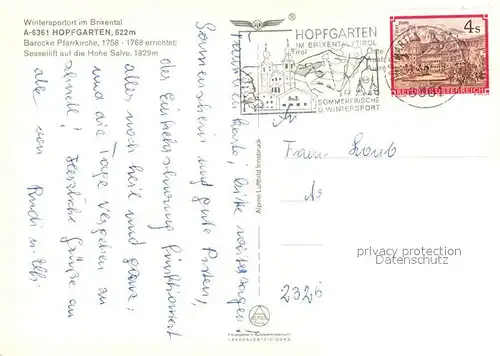 Wintersport im Brixental
A-6361 HOPFGARTEN, 622m
Barocke Pfarrkirche, 1758 - 1768 errichtet;
Sessellift auf die Hohe Salve, 1829m
HOPFGARTEN
IM BRIXENTAL/TIROL
Tirol
SOMMERFRISCHE
U. WINTERSPORT
4 s
REPUBLIK ÖSTERREICH
Sonnenschein und gute Pisten,
der Einkehrschwung funktioniert
alles noch heil und ganz;
und die Tage vergehen zu
schnell! Herzliche Grüße an
alle von Rudi u. Elfi.
Alpine Luftbild Innsbruck
Frau
2325
privacy protection
watermark
LANDESVERTEIDIGUNG